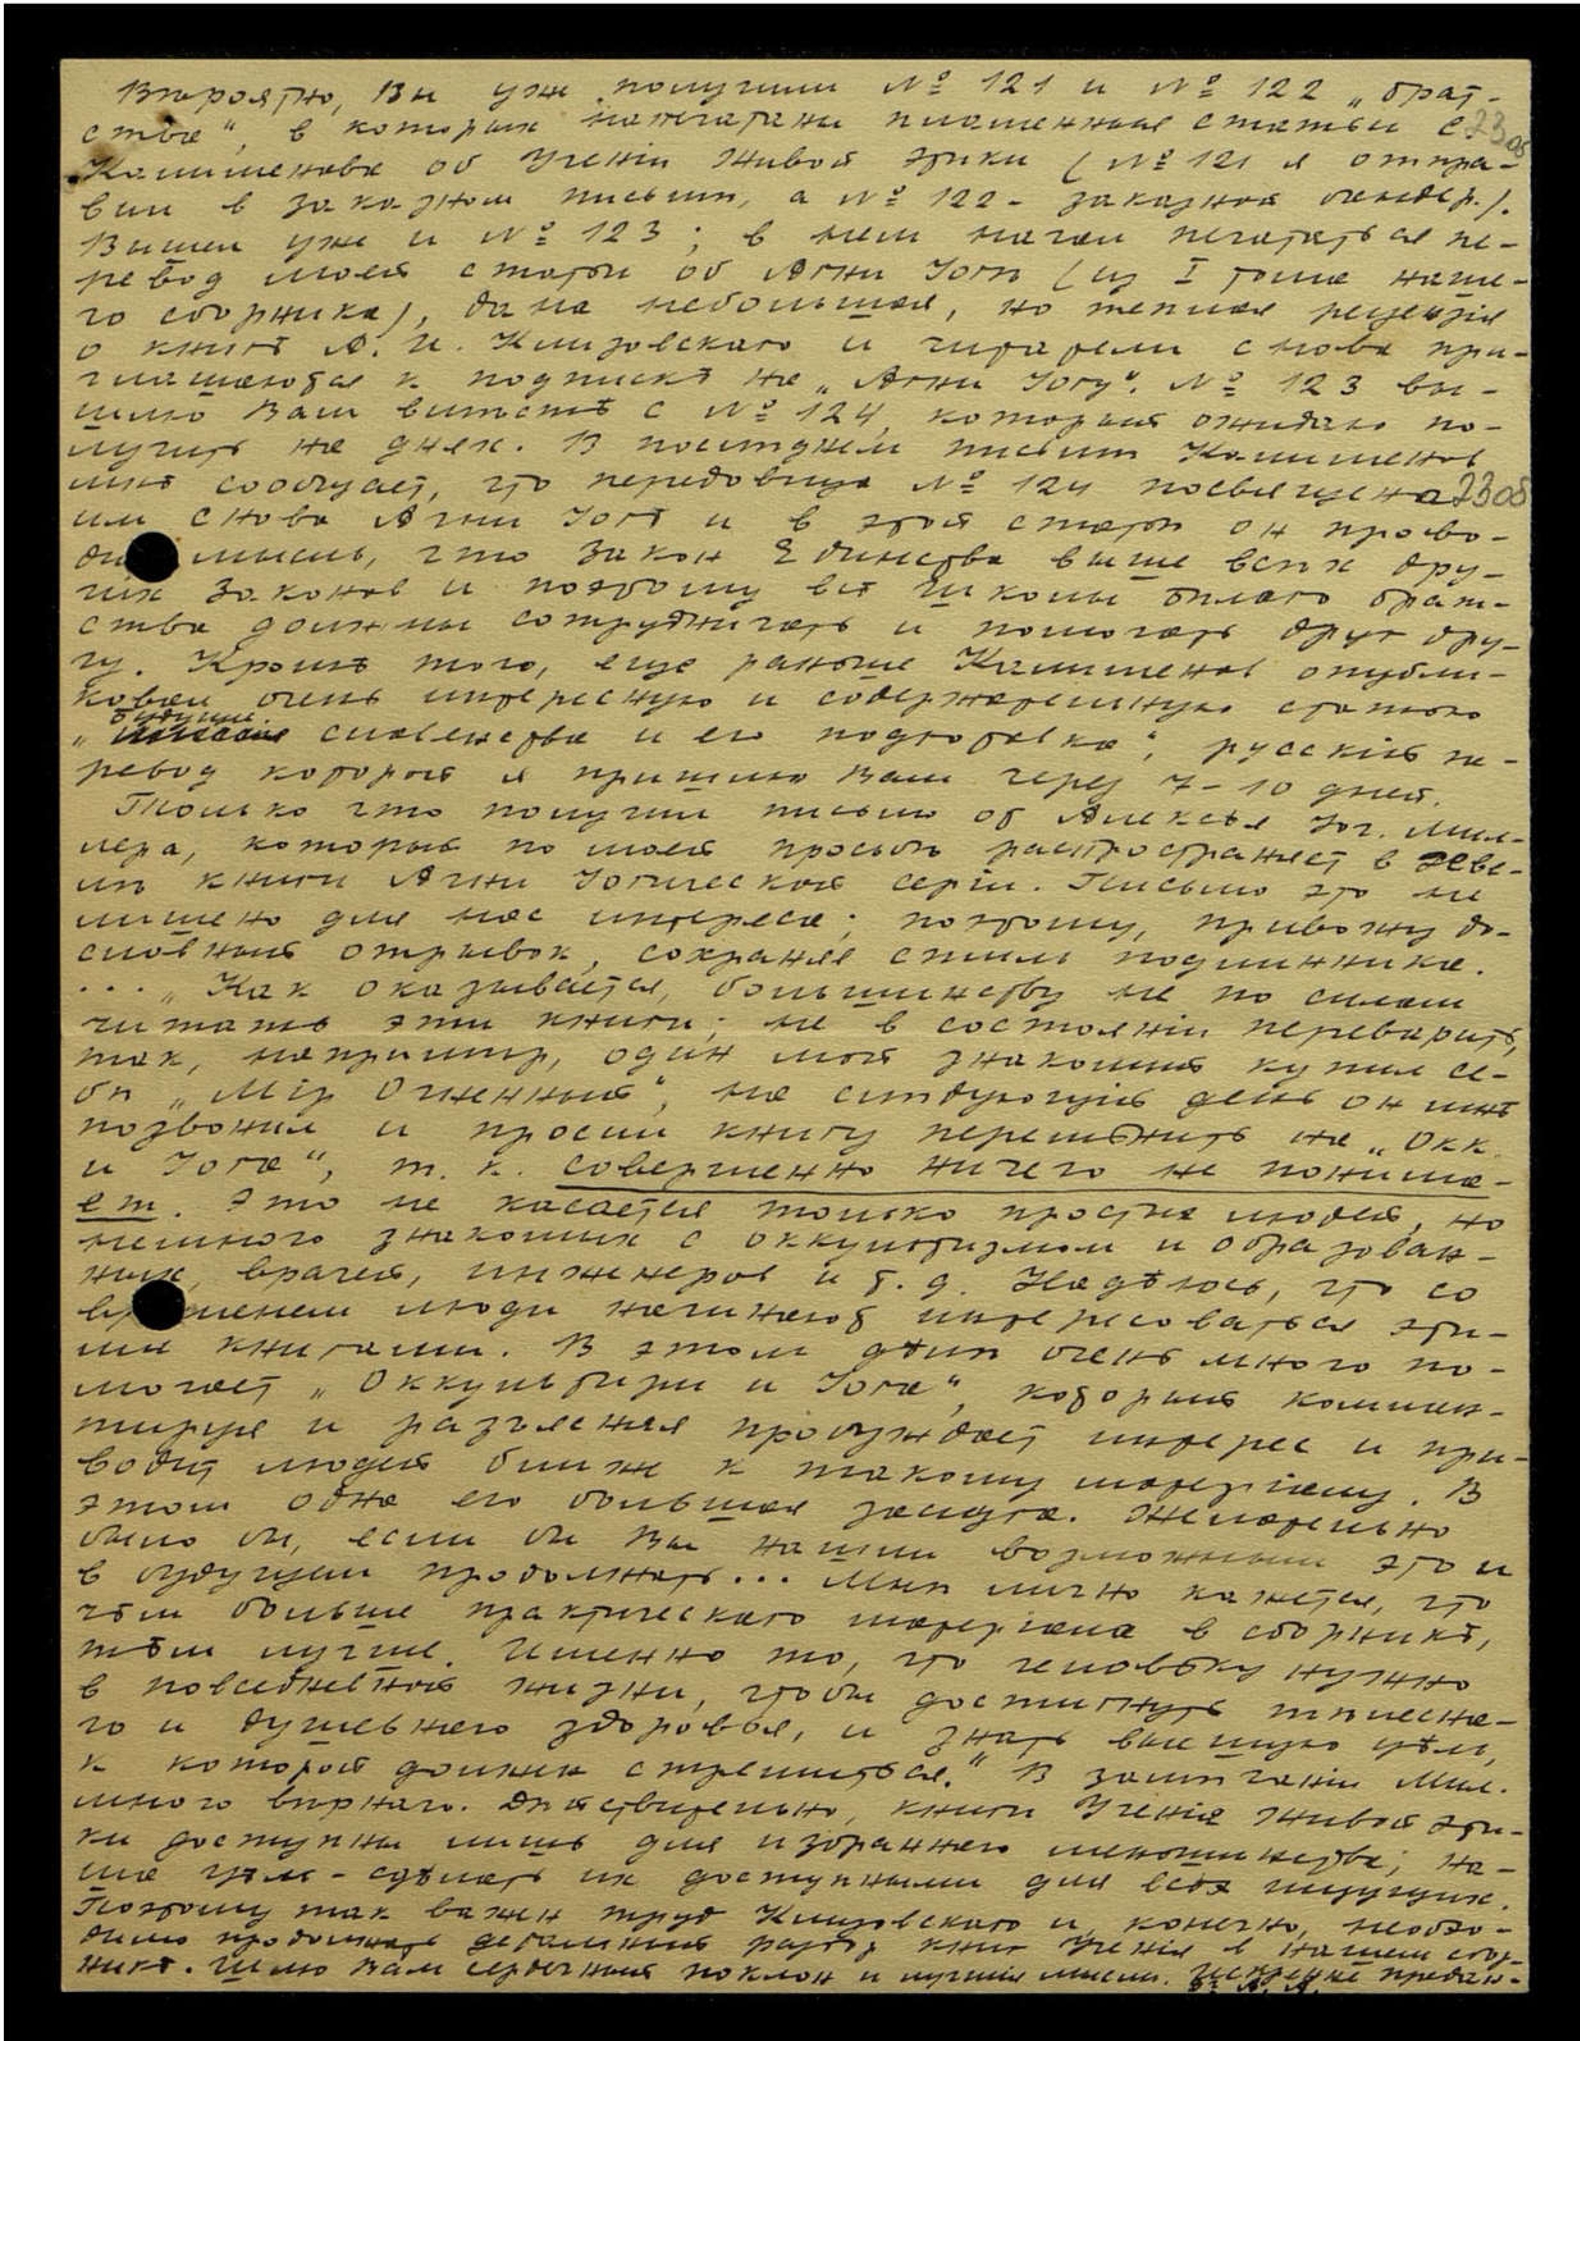 Вѣроятно, Вы уже получили № 121 и № 122 „Брат-
ства“, в которых напечатаны пламенныя статьи С.
Камименова об Ученіи Живой Этики (№ 121 я отпра-
вил в заказном письмѣ, а № 122 - заказной бандер.).
Вышел уже и № 123; в нем начал печататься пе-
ревод моей статьи об Агни Йогѣ (из I тома наше-
го сборника), дана небольшая, но теплая рецензія
о книгѣ А. И. Клизовскаго и читатели снова при-
глашаются к подпискѣ на „Агни Йогу“. № 123 вы-
шлю Вам вмѣстѣ с № 124, который ожидаю по-
лучить на днях. В послѣднем письмѣ Камименов
мнѣ сообщает, что передовица № 124 посвящена
им снова Агни Йогѣ и в этой статьѣ он прово-
ди мысль, что Закон Единства выше всѣх дру-
гих законов и поэтому всѣ школы Бѣлаго Брат-
ства должны сотрудничать и помогать друг дру-
гу. Кромѣ того, еще раньше Камименов опубли-
ковал очень интересную и содержательную статью
будущее
„ славянства и его подготовка“, русскій пе-
ревод которой я пришлю Вам через 7-10 дней.
Только что получил письмо от Алексѣя Юг. Мил-
лера, который по моей просьбѣ распространяет в Реве-
лѣ книги Агни Йогической серіи. Письмо это не
лишено для нас интереса; поэтому, привожу до-
словный отрывок, сохраняя стиль подлинника.
... „Как оказывается, большинству не по силам
читать эти книги; не в состояніи переварить,
так, напримѣр, один мой знакомый купил се-
бѣ „Мір Огненный“, на слѣдующій день он мнѣ
позвонил и просил книгу перемѣнить на „Окк.
и Йога“, т. к. совершенно ничего не понима-
ет. Это не касается только простых людей, но
немного знакомых с оккультизмом и образован-
ных, врачей, инженеров и т. д. Надѣюсь, что со
вр менем люди начинают интересоваться эти-
ми книгами. В этом дѣлѣ очень много по-
могает „Оккультизм и Йога“, который коммен-
тируя и разъясняя пробуждает интерес и при-
водит людей ближе к такому матеріалу. В
этом одна его большая заслуга. Желательно
было бы, если бы Вы нашли возможным это и
в будущем продолжать... Мнѣ лично кажется, что
чѣм больше практическаго матеріала в сборникѣ,
тѣм лучше. Именно то, что человѣку нужно
в повседневной жизни, чтобы достигнуть тѣлесна-
го и душевнаго здоровья, и знать высшую цѣль,
к которой должен стремиться.“ В замѣчаніи Мил.
много вѣрнаго. Дѣйствительно, книги Ученія Живой Эти-
ки доступны лишь для избраннаго меньшинства; на-
ша цѣль - сдѣлать их доступными для всѣх ищущих.
Поэтому так важен труд Клизовскаго и, конечно, необхо-
димо продолжать детальный разбор книг Ученія в нашем сбор-
никѣ. Шлю Вам сердечный поклон и лучшія мысли. Искренне предан-